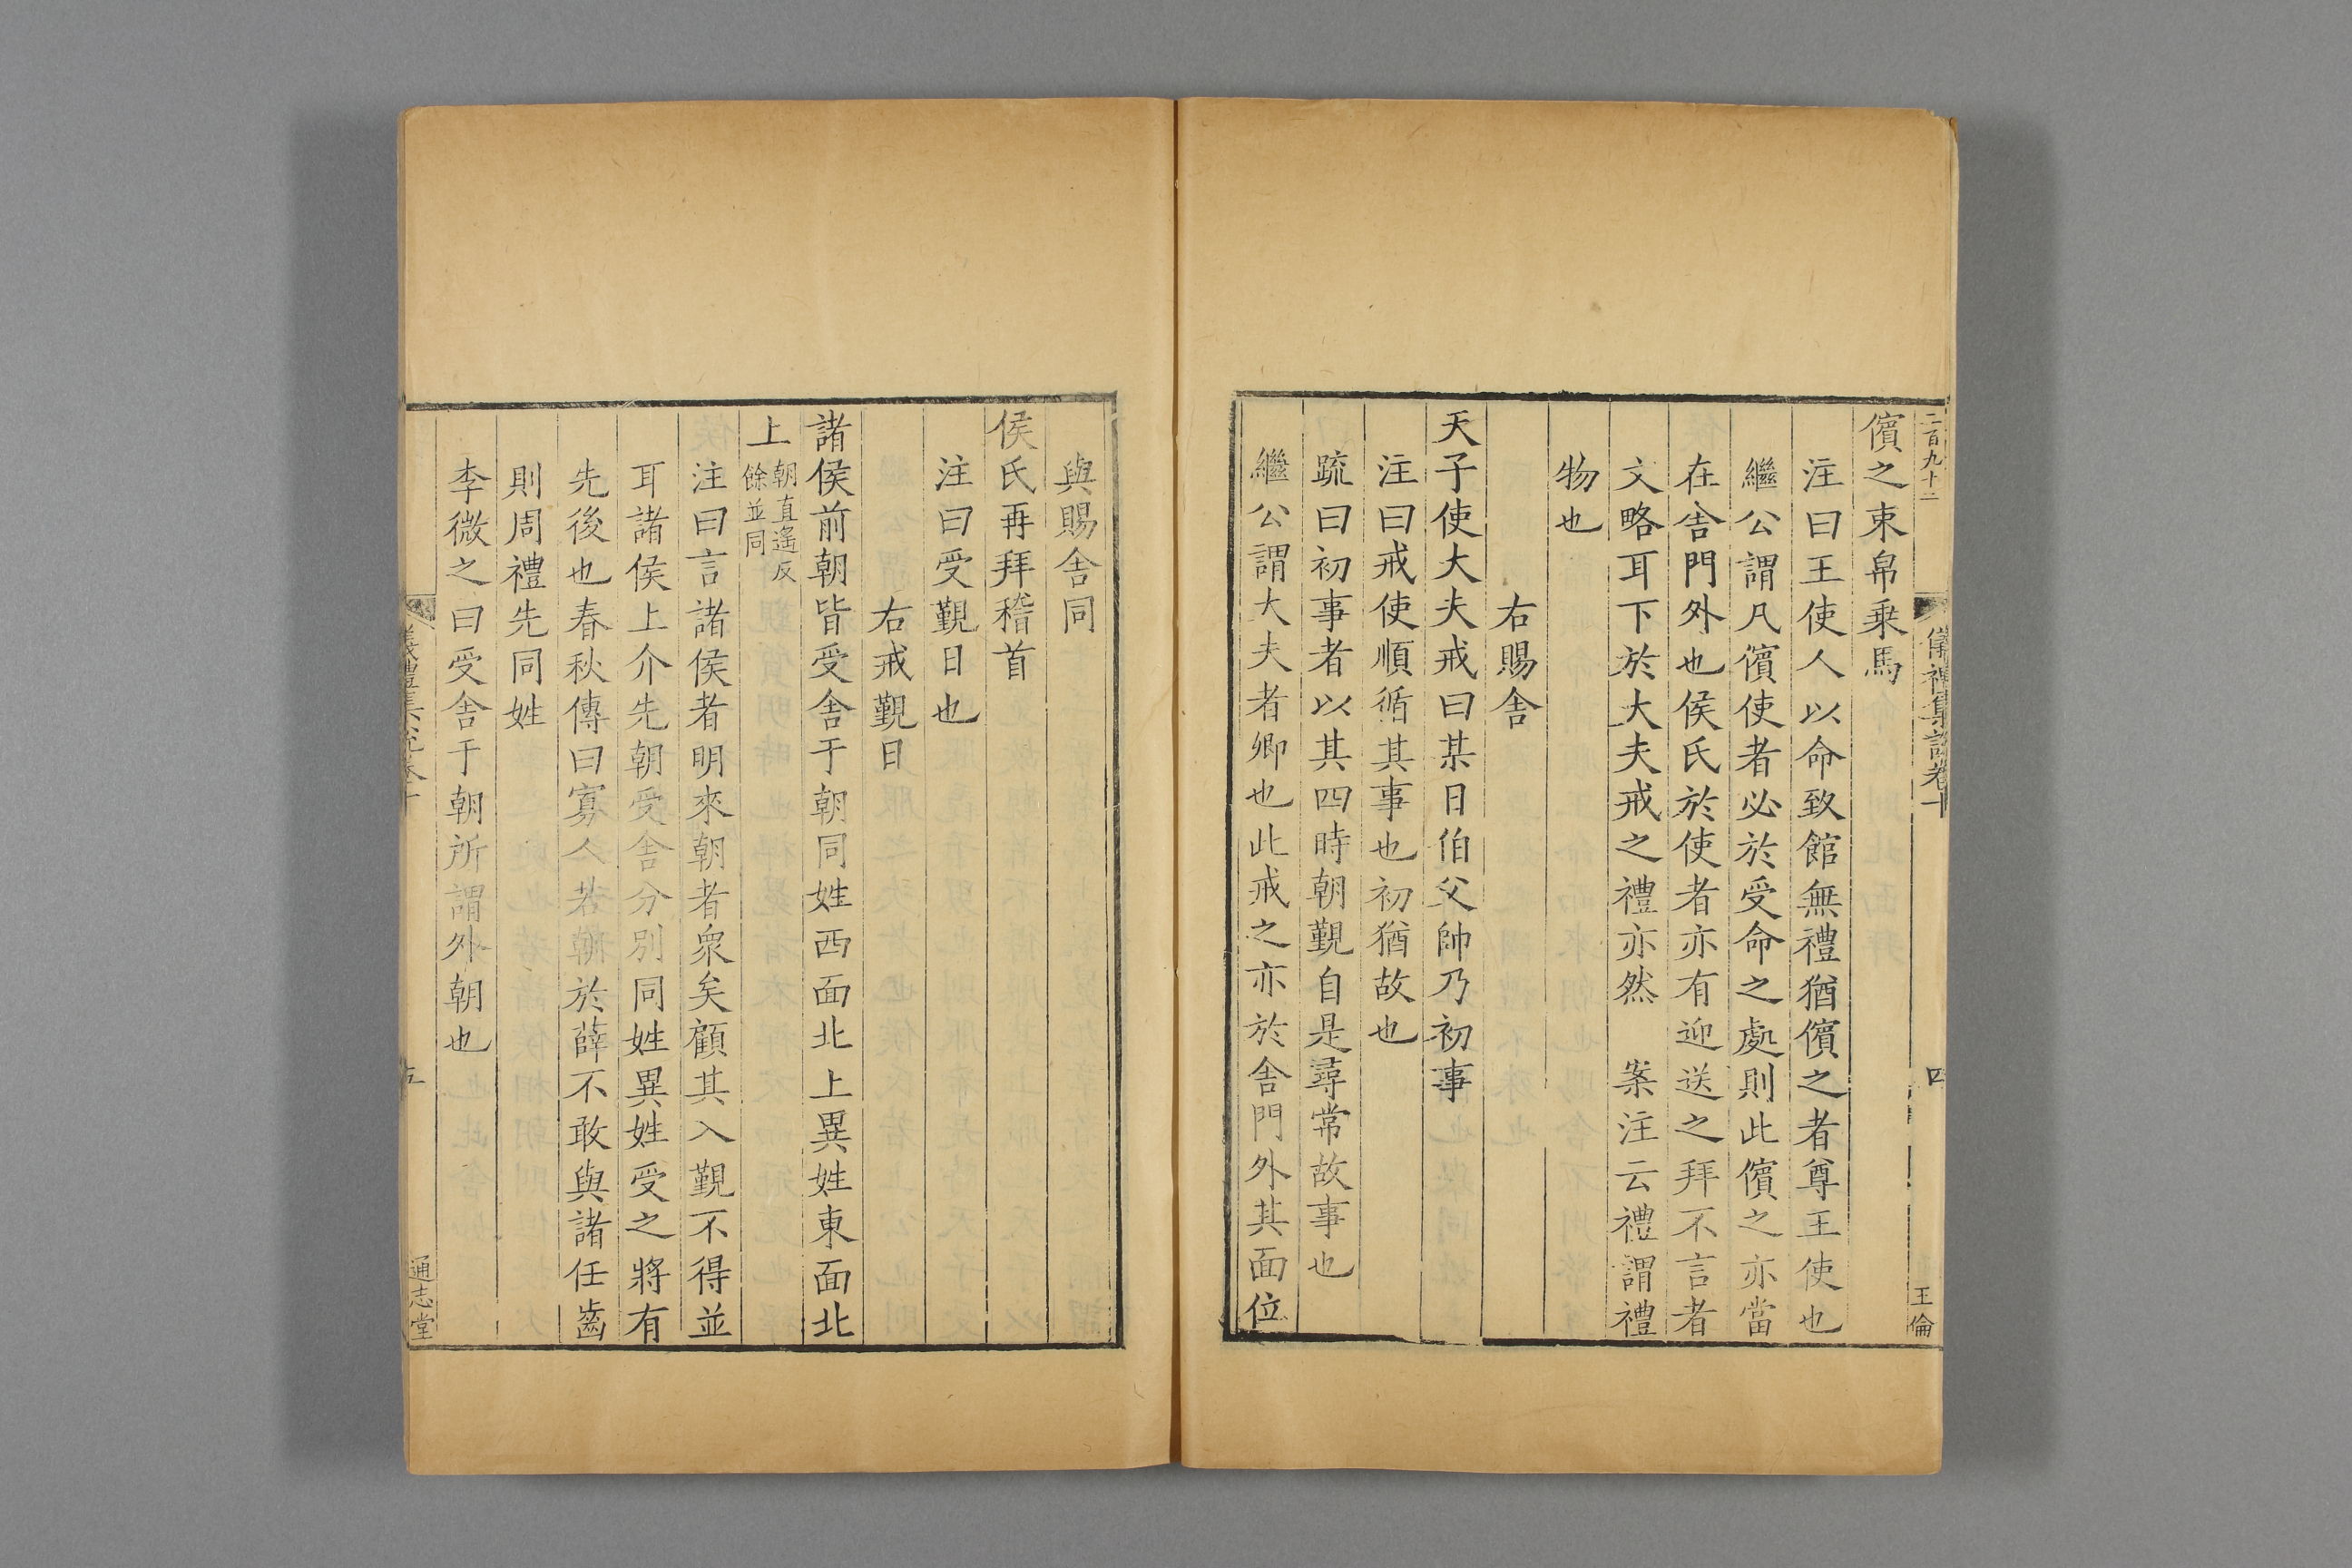 二百九十二
儀禮集說卷十
四
王倫
儐之束帛乘馬
注曰王使人以命致館無禮猶儐之者尊王使也
繼公謂凡儐使者必於受命之處則此儐之亦當
在舍門外也侯氏於使者亦有迎送之拜不言者
文略耳下於大夫戒之禮亦然　案注云禮謂禮
物也
右賜舍
天子使大夫戒曰某日伯父帥乃初事
注曰戒使順循其事也初猶故也
疏曰初事者以其四時朝覲自是尋常故事也
繼公謂大夫者卿也此戒之亦於舍門外其面位
與賜舍同
侯氏再拜稽首
注曰受覲日也
右戒覲日
諸侯前朝皆受舍于朝同姓西面北上異姓東面北
上朝直遙反
餘並同
注曰言諸侯者明來朝者衆矣顧其入覲不得並
耳諸侯上介先朝受舍分別同姓異姓受之將有
先後也春秋傳曰寡人若朝於薛不敢與諸任齒
則周禮先同姓
李微之曰受舍于朝所謂外朝也
五
通志堂